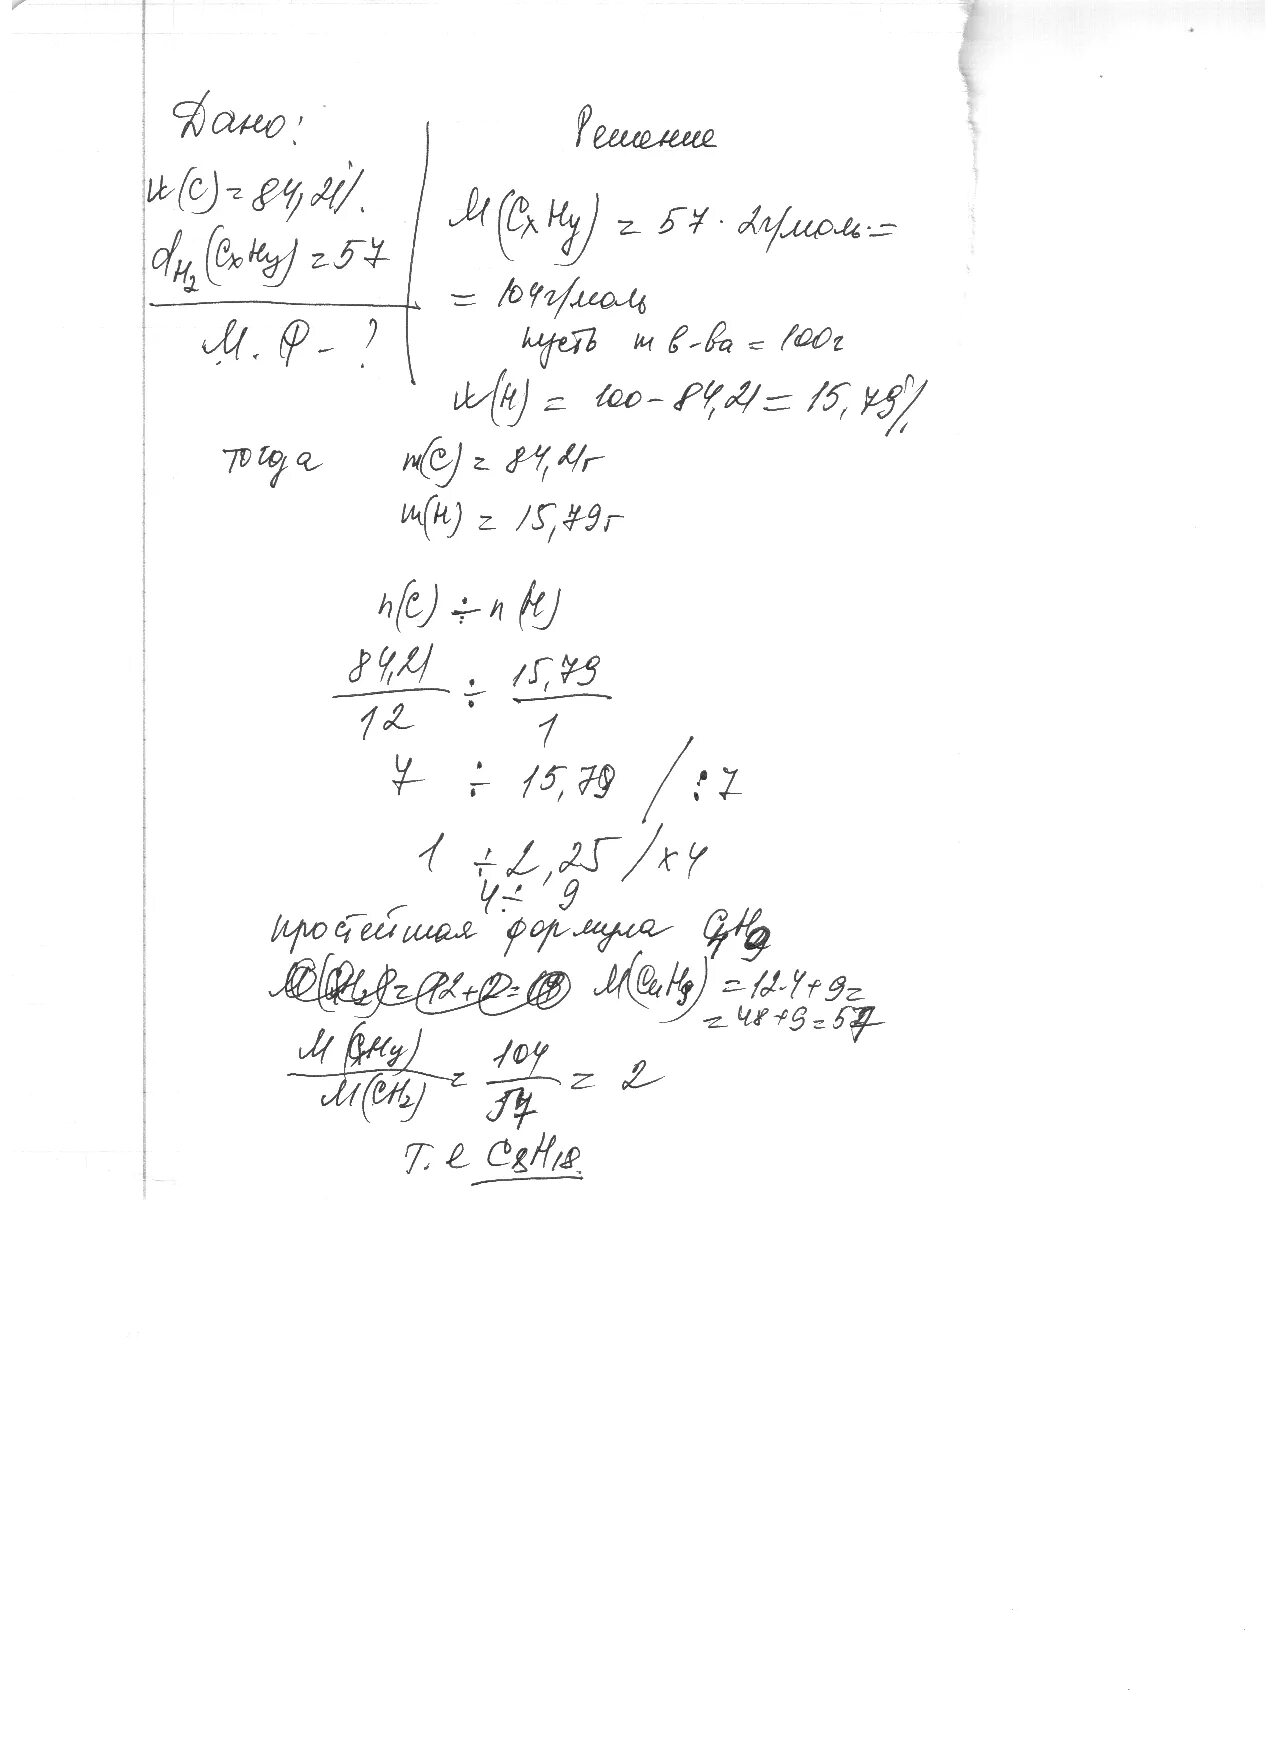 Дано:
Решение
w(C) = 84,21%.
M(CxHy) = 57 · 2г/моль =
dH2(CxHy) = 57
= 104г/моль
М. Ф - ?
пусть m в-ва = 100г
w(H) = 100 - 84,21 = 15,79%
тогда m(C) = 84,21г
m(H) = 15,79г
n(C) ÷ n(H)
84,21/12 ÷ 15,79/1
7 ÷ 15,79 / :7
1 ÷ 2,25 / x4
4 ÷ 9
простейшая формула C4H9
M(C4H9) = 12·4+9=
=48+9=57
M(CxHy)/M(CH2) = 104/57 = 2
т. е C8H18.